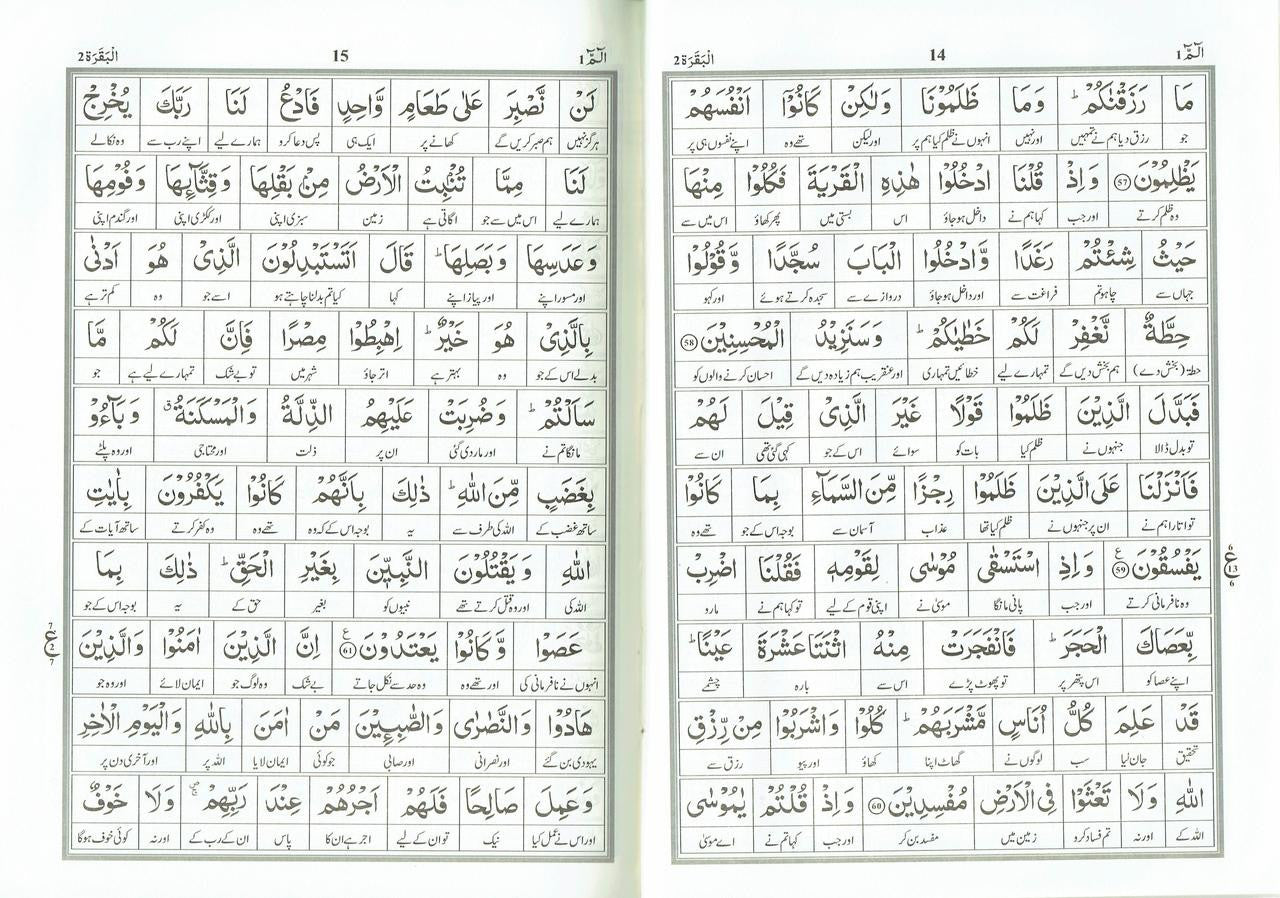 الٓمّٓ 1
14
الْبَقَرَة 2
مَا رَزَقْنٰكُمْ ؕ وَمَا ظَلَمُوْنَا وَلٰكِنْ كَانُوْۤا اَنْفُسَهُمْ
جو رزق دیا ہم نے تمہیں اور نہیں انہوں نے ظلم کیا ہم پر اور لیکن تھے وہ اپنے نفسوں ہی پر
يَظْلِمُوْنَ 57 وَاِذْ قُلْنَا ادْخُلُوْا هٰذِهِ الْقَرْيَةَ فَكُلُوْا مِنْهَا
وہ ظلم کرتے اور جب کہا ہم نے داخل ہو جاؤ اس بستی میں پھر کھاؤ اس میں سے
حَيْثُ شِئْتُمْ رَغَدًا وَّادْخُلُوا الْبَابَ سُجَّدًا وَّقُوْلُوْا
جہاں سے چاہو تم فراغت سے اور داخل ہو جاؤ دروازے سے سجدہ کرتے ہوئے اور کہو
حِطَّةٌ نَّغْفِرْ لَكُمْ خَطٰيٰكُمْ ؕ وَسَنَزِيْدُ الْمُحْسِنِيْنَ 58
حطۃ (بخش دے) ہم بخش دیں گے تمہارے لیے خطائیں تمہاری اور عنقریب ہم زیادہ دیں گے احسان کرنے والوں کو
فَبَدَّلَ الَّذِيْنَ ظَلَمُوْا قَوْلًا غَيْرَ الَّذِيْ قِيْلَ لَهُمْ
تو بدل ڈالا جنہوں نے ظلم کیا بات کو سوائے اس کے جو کہی گئی تھی ان سے
فَاَنْزَلْنَا عَلَى الَّذِيْنَ ظَلَمُوْا رِجْزًا مِّنَ السَّمَآءِ بِمَا كَانُوْا
تو اتارا ہم نے ان پر جنہوں نے ظلم کیا تھا عذاب آسمان سے بوجہ اس کے جو تھے وہ
يَفْسُقُوْنَ 59 ع وَاِذِ اسْتَسْقٰى مُوْسٰى لِقَوْمِهٖ فَقُلْنَا اضْرِبْ
وہ نافرمانی کرتے اور جب پانی مانگا موسیٰ نے اپنی قوم کے لیے تو کہا ہم نے مارو
6 ع 13 6
بِّعَصَاكَ الْحَجَرَ ؕ فَانْفَجَرَتْ مِنْهُ اثْنَتَا عَشْرَةَ عَيْنًا ؕ
اپنے عصا کو اس پتھر پر تو پھوٹ پڑے اس سے بارہ چشمے
قَدْ عَلِمَ كُلُّ اُنَاسٍ مَّشْرَبَهُمْ ؕ كُلُوْا وَاشْرَبُوْا مِنْ رِّزْقِ
تحقیق جان لیا سب لوگوں نے گھاٹ اپنا کھاؤ اور پیو رزق سے
اللّٰهِ وَلَا تَعْثَوْا فِي الْاَرْضِ مُفْسِدِيْنَ 60 وَاِذْ قُلْتُمْ يٰمُوْسٰى
اللہ کے اور نہ تم فساد کرو زمین میں مفسد بن کر اور جب کہا تم نے اے موسیٰ
الٓمّٓ 1
15
الْبَقَرَة 2
لَنْ نَّصْبِرَ عَلٰى طَعَامٍ وَّاحِدٍ فَادْعُ لَنَا رَبَّكَ يُخْرِجْ
ہرگز نہیں ہم صبر کریں گے کھانے پر ایک ہی پس دعا کرو ہمارے لیے اپنے رب سے وہ نکالے
لَنَا مِمَّا تُنْۢبِتُ الْاَرْضُ مِنْۢ بَقْلِهَا وَقِثَّآئِهَا وَفُوْمِهَا
ہمارے لیے اس میں سے جو اگاتی ہے زمین سبزی اپنی اور ککڑی اپنی اور گندم اپنی
وَعَدَسِهَا وَبَصَلِهَا ؕ قَالَ اَتَسْتَبْدِلُوْنَ الَّذِيْ هُوَ اَدْنٰى
اور مسور اپنے اور پیاز اپنے کہا کیا تم بدلنا چاہتے ہو اسے جو وہ کم تر ہے
بِالَّذِيْ هُوَ خَيْرٌ ؕ اِهْبِطُوْا مِصْرًا فَاِنَّ لَكُمْ مَّا
بدلے اس کے جو وہ بہتر ہے اتر جاؤ شہر میں تو بے شک تمہارے لیے ہے جو
سَاَلْتُمْ ؕ وَضُرِبَتْ عَلَيْهِمُ الذِّلَّةُ وَالْمَسْكَنَةُ ۗ وَبَآءُوْ
مانگا تم نے اور مار دی گئی ان پر ذلت اور محتاجی اور وہ پلٹے
بِغَضَبٍ مِّنَ اللّٰهِ ؕ ذٰلِكَ بِاَنَّهُمْ كَانُوْا يَكْفُرُوْنَ بِاٰيٰتِ
ساتھ غضب کے اللہ کی طرف سے یہ بوجہ اس کے کہ وہ تھے وہ وہ کفر کرتے ساتھ آیات کے
اللّٰهِ وَيَقْتُلُوْنَ النَّبِيّٖنَ بِغَيْرِ الْحَقِّ ؕ ذٰلِكَ بِمَا
اللہ کی اور وہ قتل کرتے تھے نبیوں کو بغیر حق کے یہ بوجہ اس کے جو
عَصَوْا وَّكَانُوْا يَعْتَدُوْنَ 61 ع اِنَّ الَّذِيْنَ اٰمَنُوْا وَالَّذِيْنَ
انہوں نے نافرمانی کی اور تھے وہ وہ حد سے نکل جاتے بے شک وہ لوگ جو ایمان لائے اور وہ جو
7 ع 2 7
هَادُوْا وَالنَّصٰرٰى وَالصّٰبِـِٕيْنَ مَنْ اٰمَنَ بِاللّٰهِ وَالْيَوْمِ الْاٰخِرِ
یہودی بن گئے اور نصرانی اور صابی جو کوئی ایمان لایا اللہ پر اور آخری دن پر
وَعَمِلَ صَالِحًا فَلَهُمْ اَجْرُهُمْ عِنْدَ رَبِّهِمْ ۚ وَلَا خَوْفٌ
اور اس نے عمل کیا نیک تو ان کے لیے اجر ہے ان کا پاس ان کے رب کے اور نہ کوئی خوف ہوگا